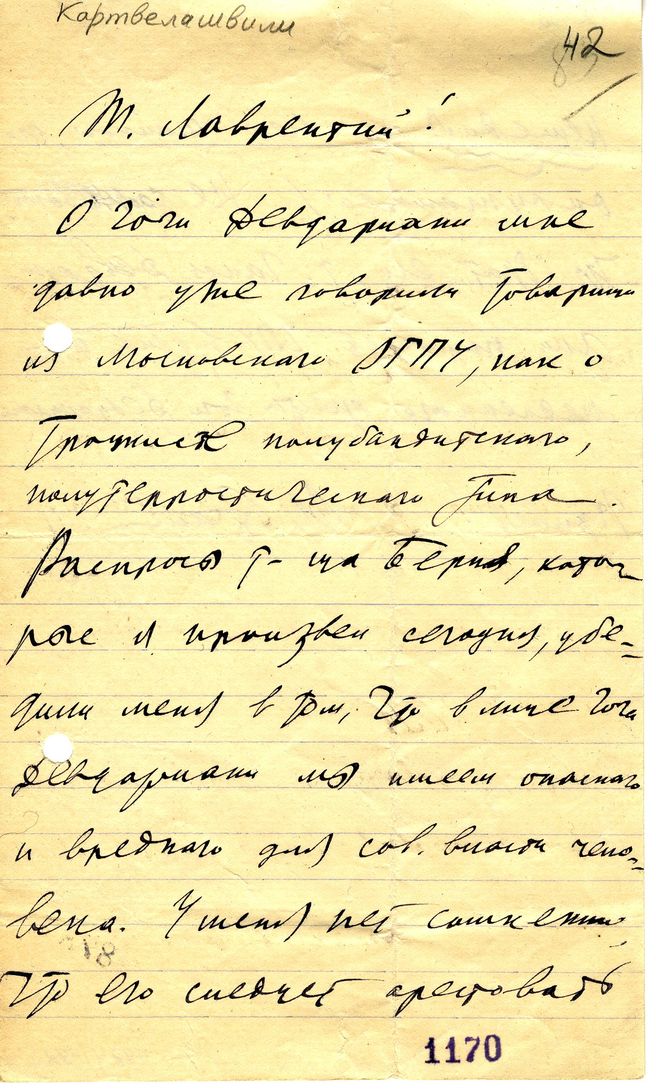 Картвелашвили
42
Т. Лаврентий!
О Гоги Девдариани мне
давно уже говорили товарищи
из Московского ОГПУ, как о
троцкисте полубандитского,
полутерростического типа.
Распросы т-ща Берия, кото-
рые я произвел сегодня, убе-
дили меня в том, что в лице Гоги
Девдариани мы имеем опасного
и вредного для сов. власти чело-
века. У меня нет сомнений
что его следует арестовать
1170